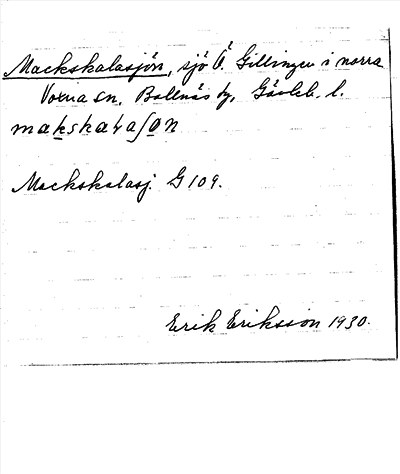 Mackskalasjön, sjö Ö. Gillingen i norra
Voxna sn, Bollnäs tg, Gävleb. l.
makskalaʃon
Mackskalasj. G 109.
Erik Eriksson 1930.